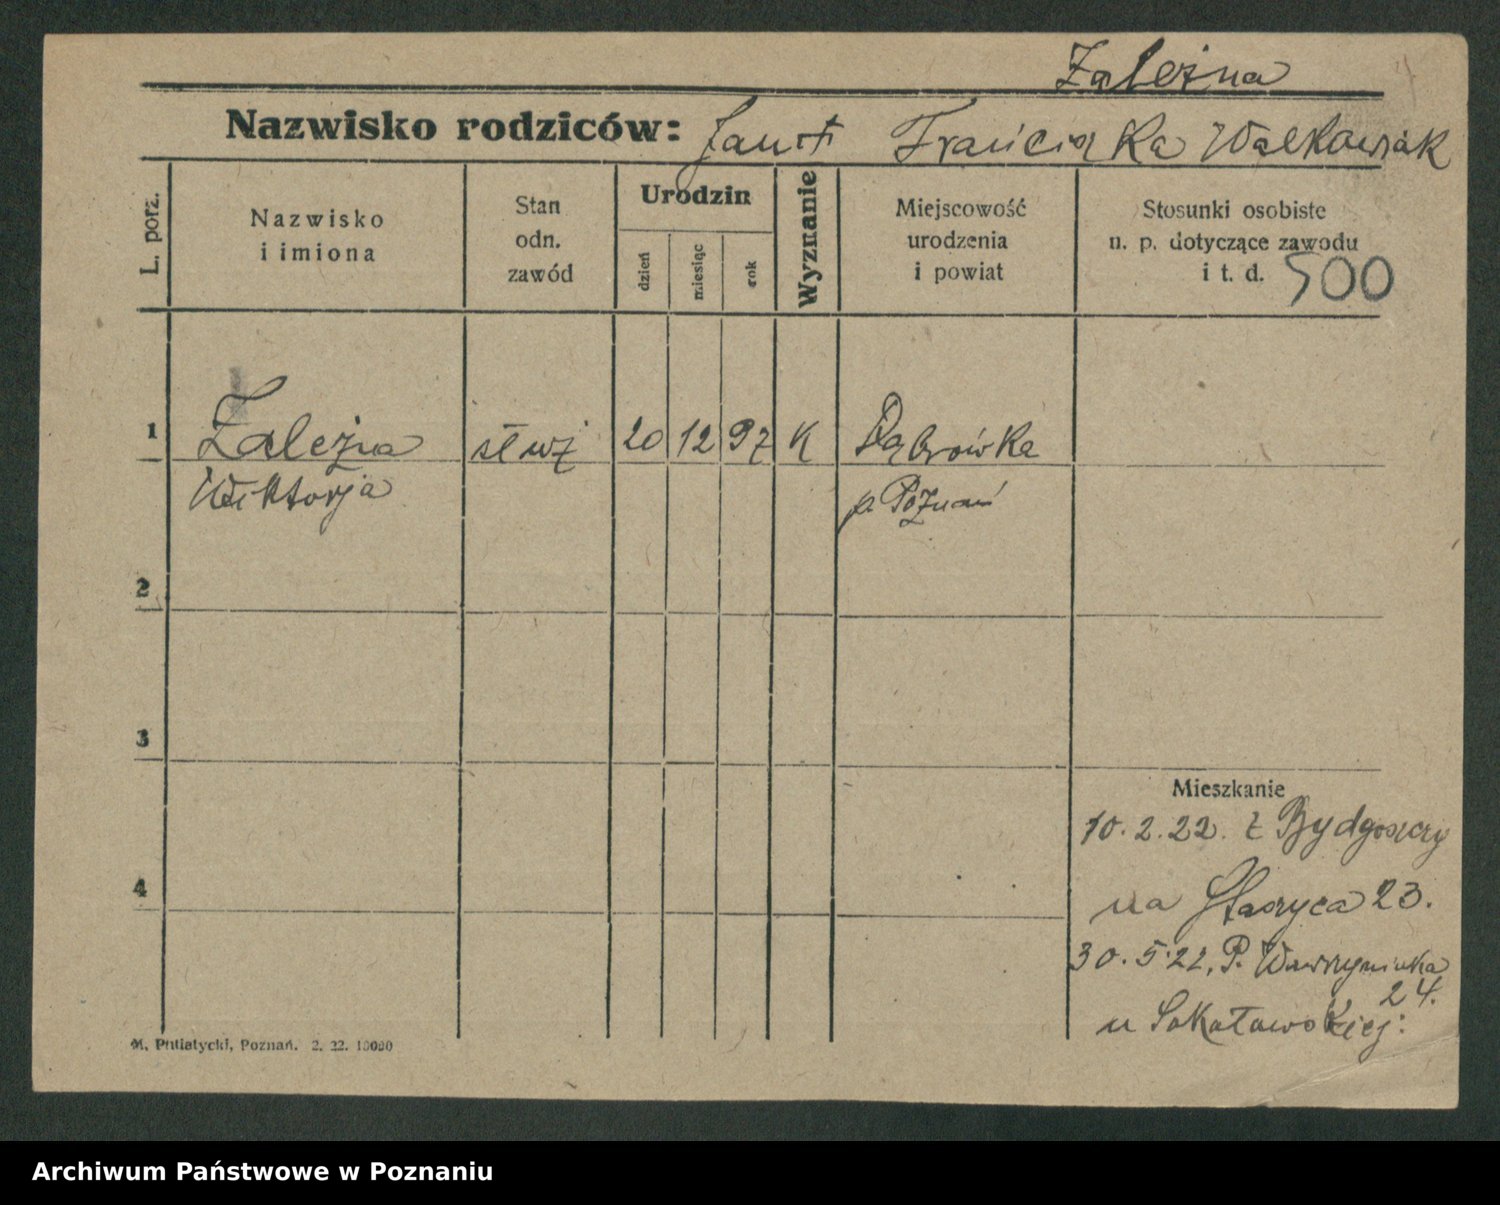 Zależna
Nazwisko rodziców: Jan † Franciszka Walkowiak
L. porz.
Nazwisko
i imiona
Stan
odn.
zawód
Urodzin
dzień
miesiąc
rok
Wyznanie
Miejscowość
urodzenia
i powiat
Stosunki osobiste
n. p. dotyczące zawodu
i t. d. 500
1 Zależna 20 12 97 K Dąbrówka
Wiktorja p. Poznań
2
3
4
Mieszkanie
10.2.22. z Bydgoszczy
na Staszyca 23.
30.5.22. P. Wawrzyniaka
24.
u Sokołowskiej:
M. Putiatycki, Poznań. 2. 22. 10000
Archiwum Państwowe w Poznaniu